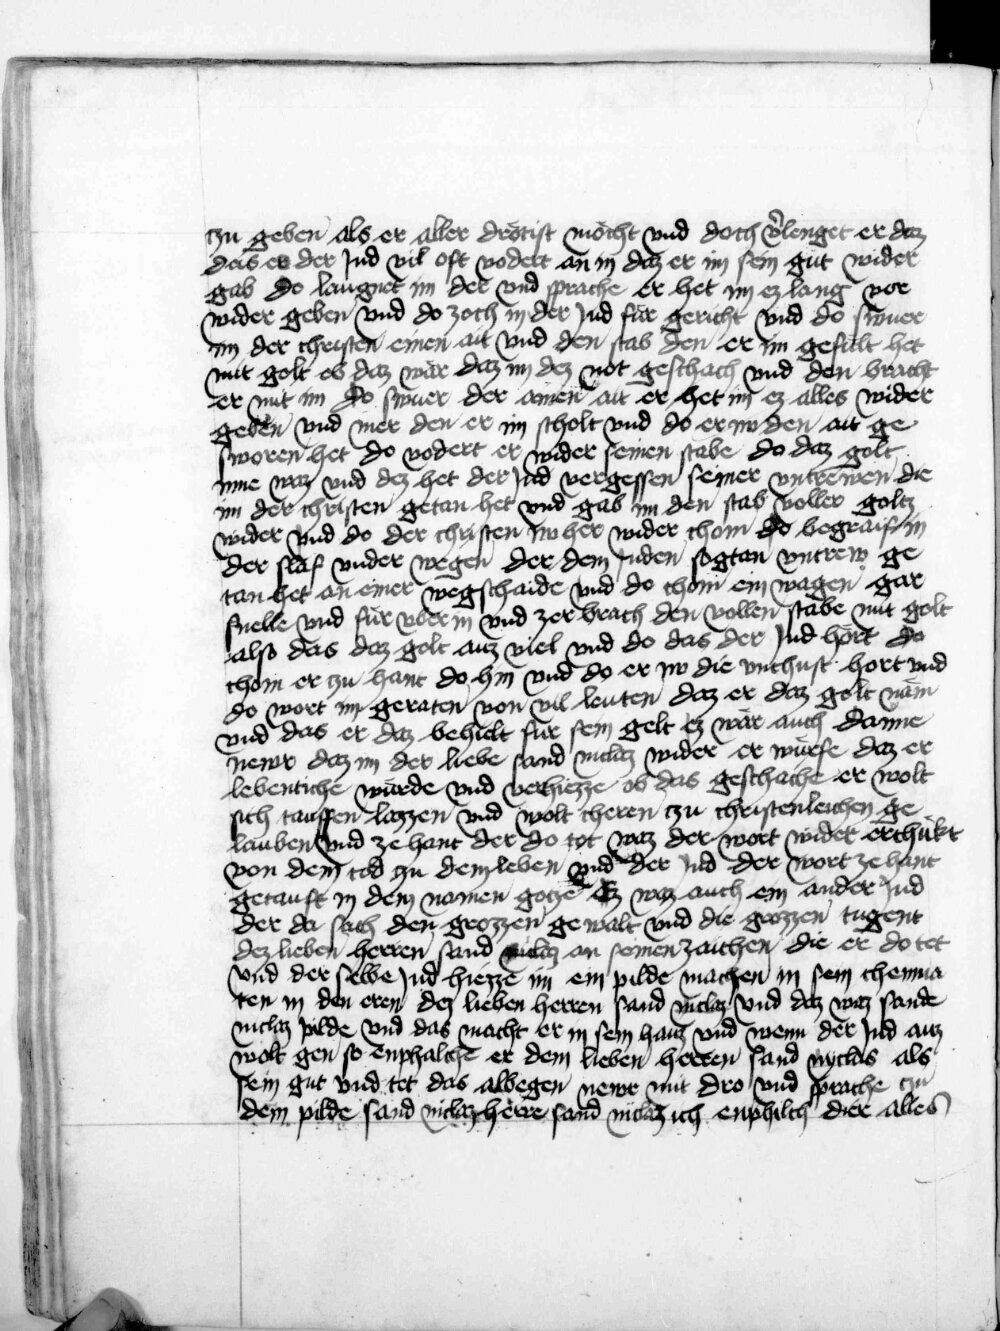 czu geben als er aller drötist möcht vnd doch v̉lenget er daz
das er der Jud vil oft vodert an in daz er im sein gut wider
gab do laugnet im der vnd sprache er het im ez lang vor
wider geben vnd do zoch in der Jud für gericht vnd do swuer
im der christen einen ait vnd den stab den er im gefült het
mit golt eb daz wär daz im dez not geschach vnd den bracht
er mit im do swuer der ainen ait er het im ez alles wider
geben vnd mer den er im scholt vnd do er iw den ait ge
sworen het do vodert er wider seinen stabe do daz golt
inne waz vnd dez het der Jud vergessen seiner vntrewen die
im der christen getan het vnd gab im den stab voller goltz
wider vnd do der christen iw her wider chom do begraif in
der slaf vnder wegen der dem Juden sogtan vntrew ge
tan het an einer wegschaide vnd do chom ein wagen gar
snelle vnd für vber in vnd zerbrach den vollen stabe mit golt
also das daz golt auz viel vnd do das der Jud hört do
chom er czu hant do hin vnd do er iw die vnchust hort vnd
do wort im geraten von vil leuten daz er daz golt näm
vnd das er daz behielt für sein gelt ez wär auch danne
newr daz im der liebe sand niclaz wider er würfe daz er
lebentiche würde vnd verhiezze ob das geschache er wolt
sich tauffen lazzen vnd wolt cheren czu christenleichen ge
lauben vnd ze hant der do tot waz der wort wider erchükt
von dem tod zu dem leben vnd der Jud der wort ze hant
getauft in dem namen gotze Ez waz auch ein ander Jud
der da sach den grozzen gewalt vnd die grozzen tugent
dez lieben herren sand niclaz an seinen zaichen die er do tet
vnd der selbe Jud hiezze im ein pilde machen in sein chemna
ten in den eren dez lieben herren sand niclaz vnd daz waz sande
niclaz pilde vnd das macht er in sein hauz vnd wenn der Jud auz
wolt gen so enphalche er dem lieben herren sand nyclas als
sein gut vnd tet das albegen newr mit dro vnd sprache czu
dem pilde sand niclaz herre sand niclaz ich enphilch dier alles